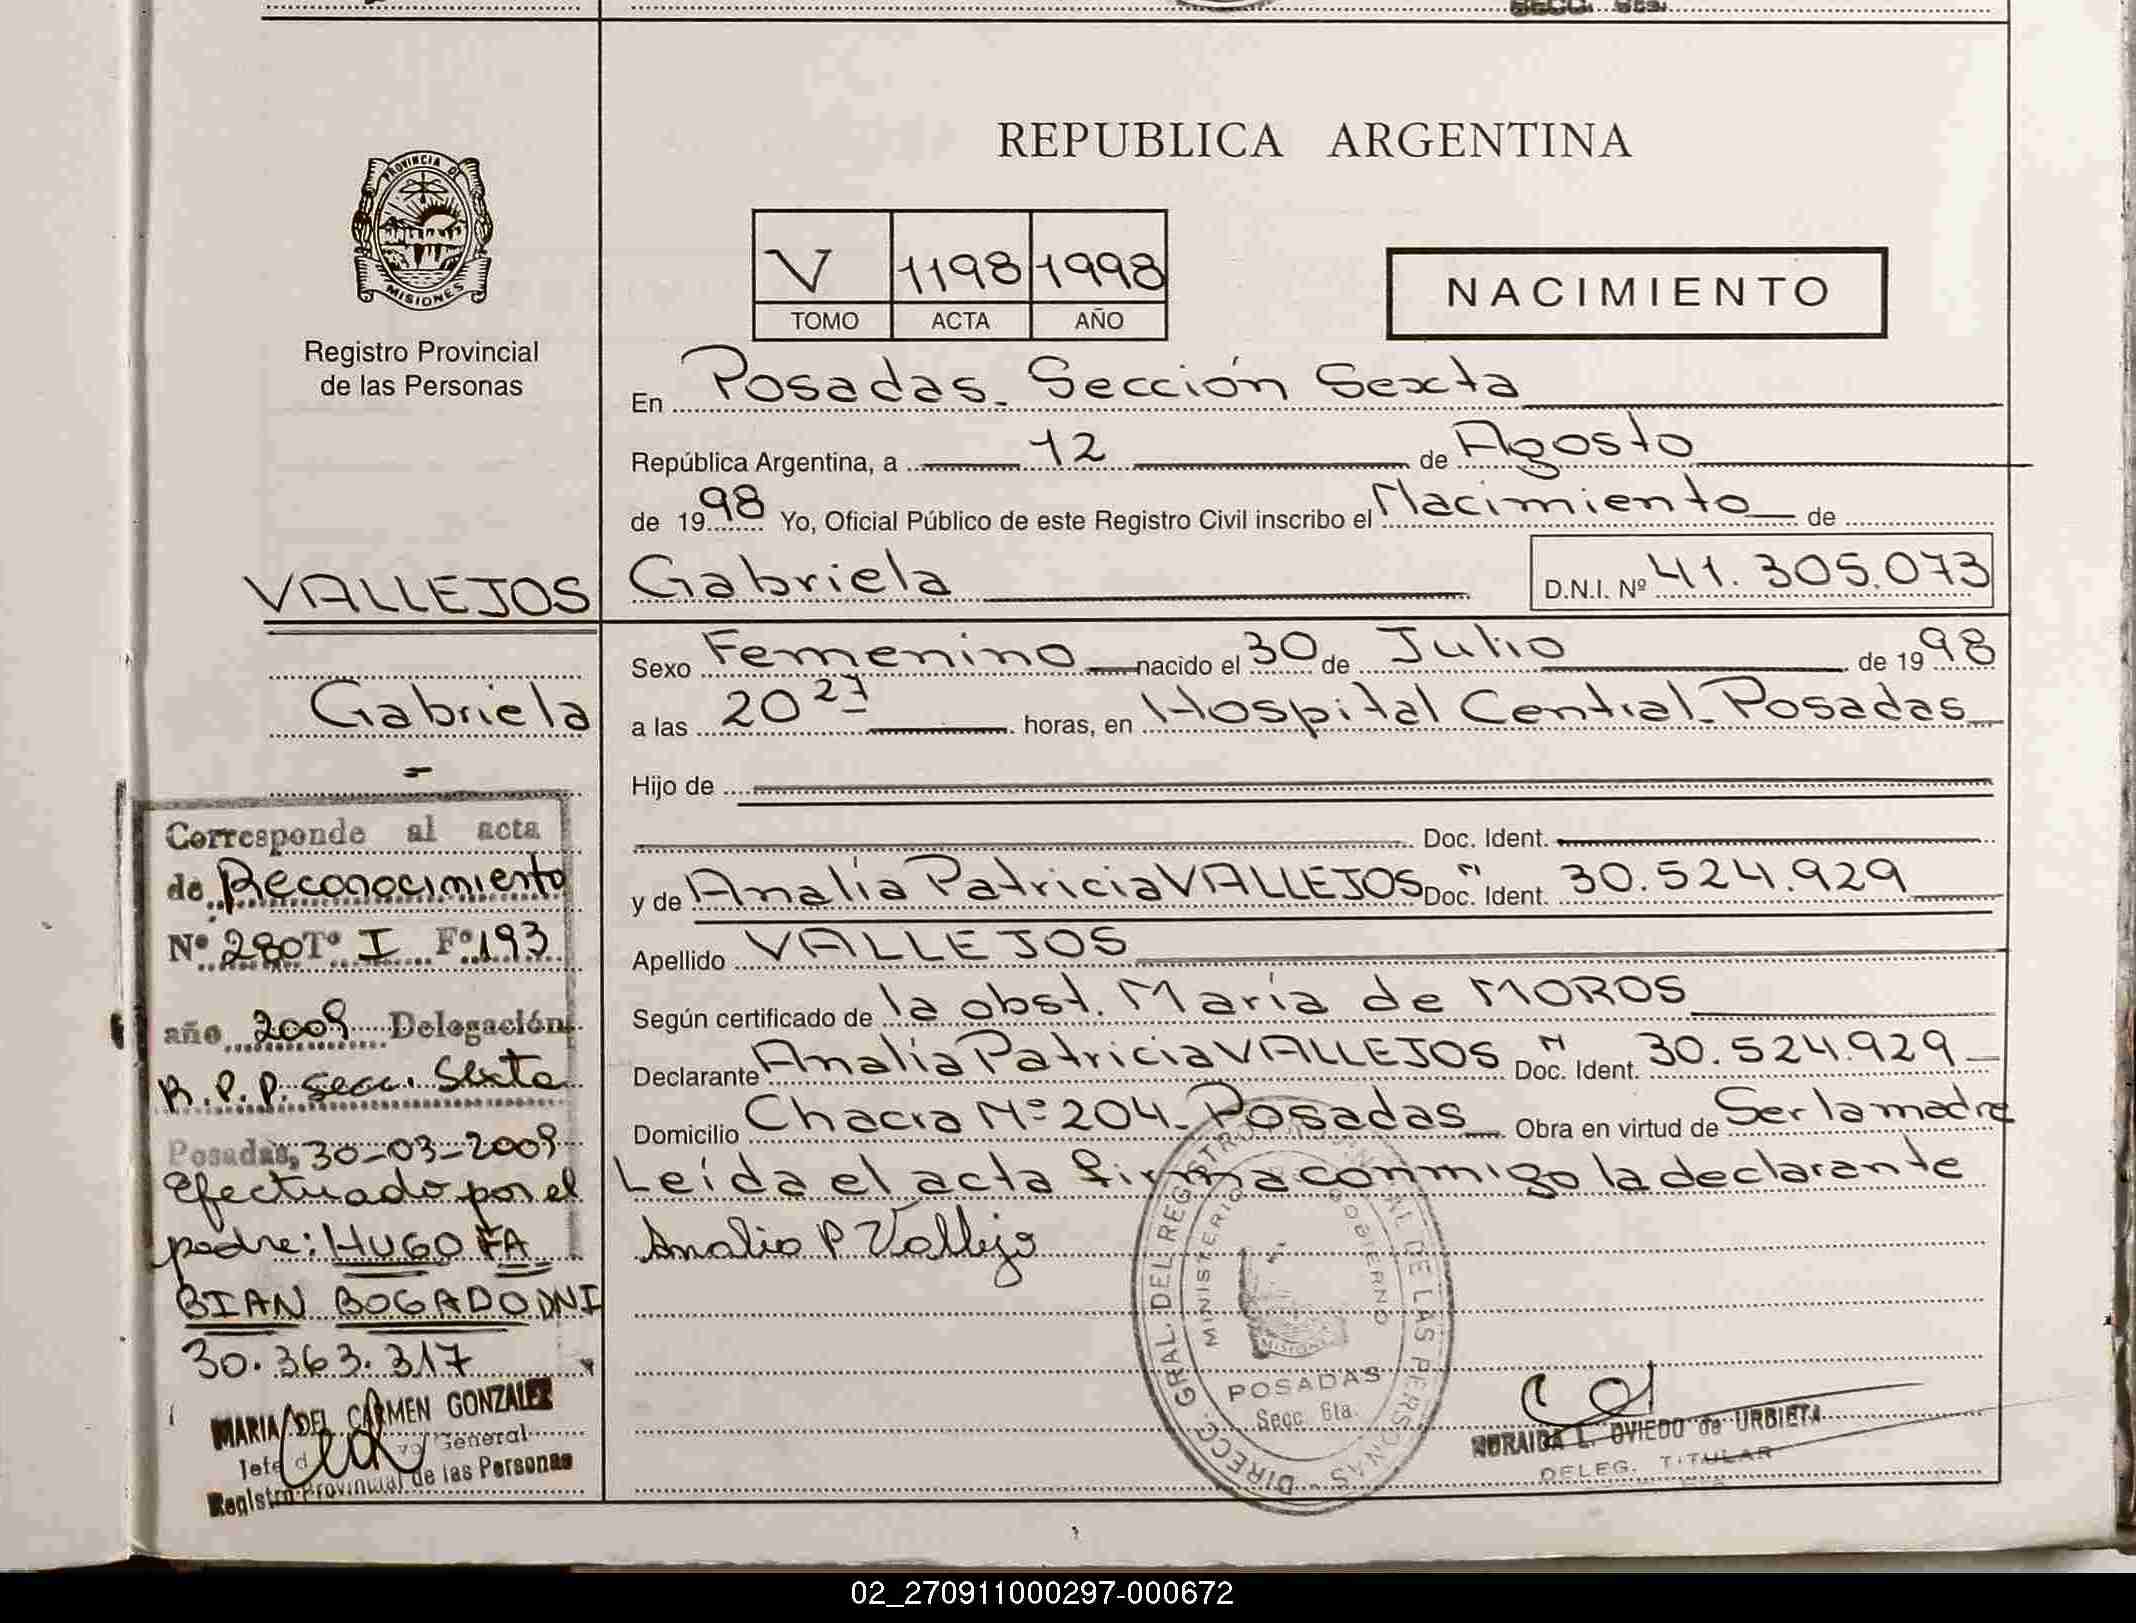 SECC. 6ta.
REPUBLICA ARGENTINA
PROVINCIA DE
MISIONES
Registro Provincial
de las Personas
V 1198 1998
TOMO ACTA AÑO
NACIMIENTO
En Posadas - Sección Sexta
República Argentina, a 12 de Agosto
de 1998 Yo, Oficial Público de este Registro Civil inscribo el Nacimiento de
Gabriela D.N.I. Nº 41.305.073
Sexo Femenino nacido el 30 de Julio de 1998
a las 20 27 horas, en Hospital Central - Posadas
Hijo de
Doc. Ident.
y de Analía Patricia VALLEJOS Doc. Ident. 30.524.929
Apellido VALLEJOS
Según certificado de la obst. María de MOROS
Declarante Analía Patricia VALLEJOS Doc. Ident. 30.524.929
Domicilio Chacra Nº 204 - Posadas Obra en virtud de Ser la madre
Leída el acta firma conmigo la declarante
Analia P Vallejo
VALLEJOS
Gabriela
Corresponde al acta
de Reconocimiento
Nº 280 Tº I Fº 193
año 2009 Delegación
R.P.P. Secc. Sexta
Posadas, 30-03-2009
Efectuado por el
padre: HUGO FA
BIAN BOGADO DNI
30.363.317
MARIA DEL CARMEN GONZALEZ
General
Registro Provincial de las Personas
DIRECC. GRAL. DEL REGISTRO PROVINCIAL DE LAS PERSONAS
MINISTERIO DE GOBIERNO
MISIONES
POSADAS
Secc. 6ta.
NORAIDA L. OVIEDO de URBIETA
DELEG. TITULAR
02_270911000297-000672